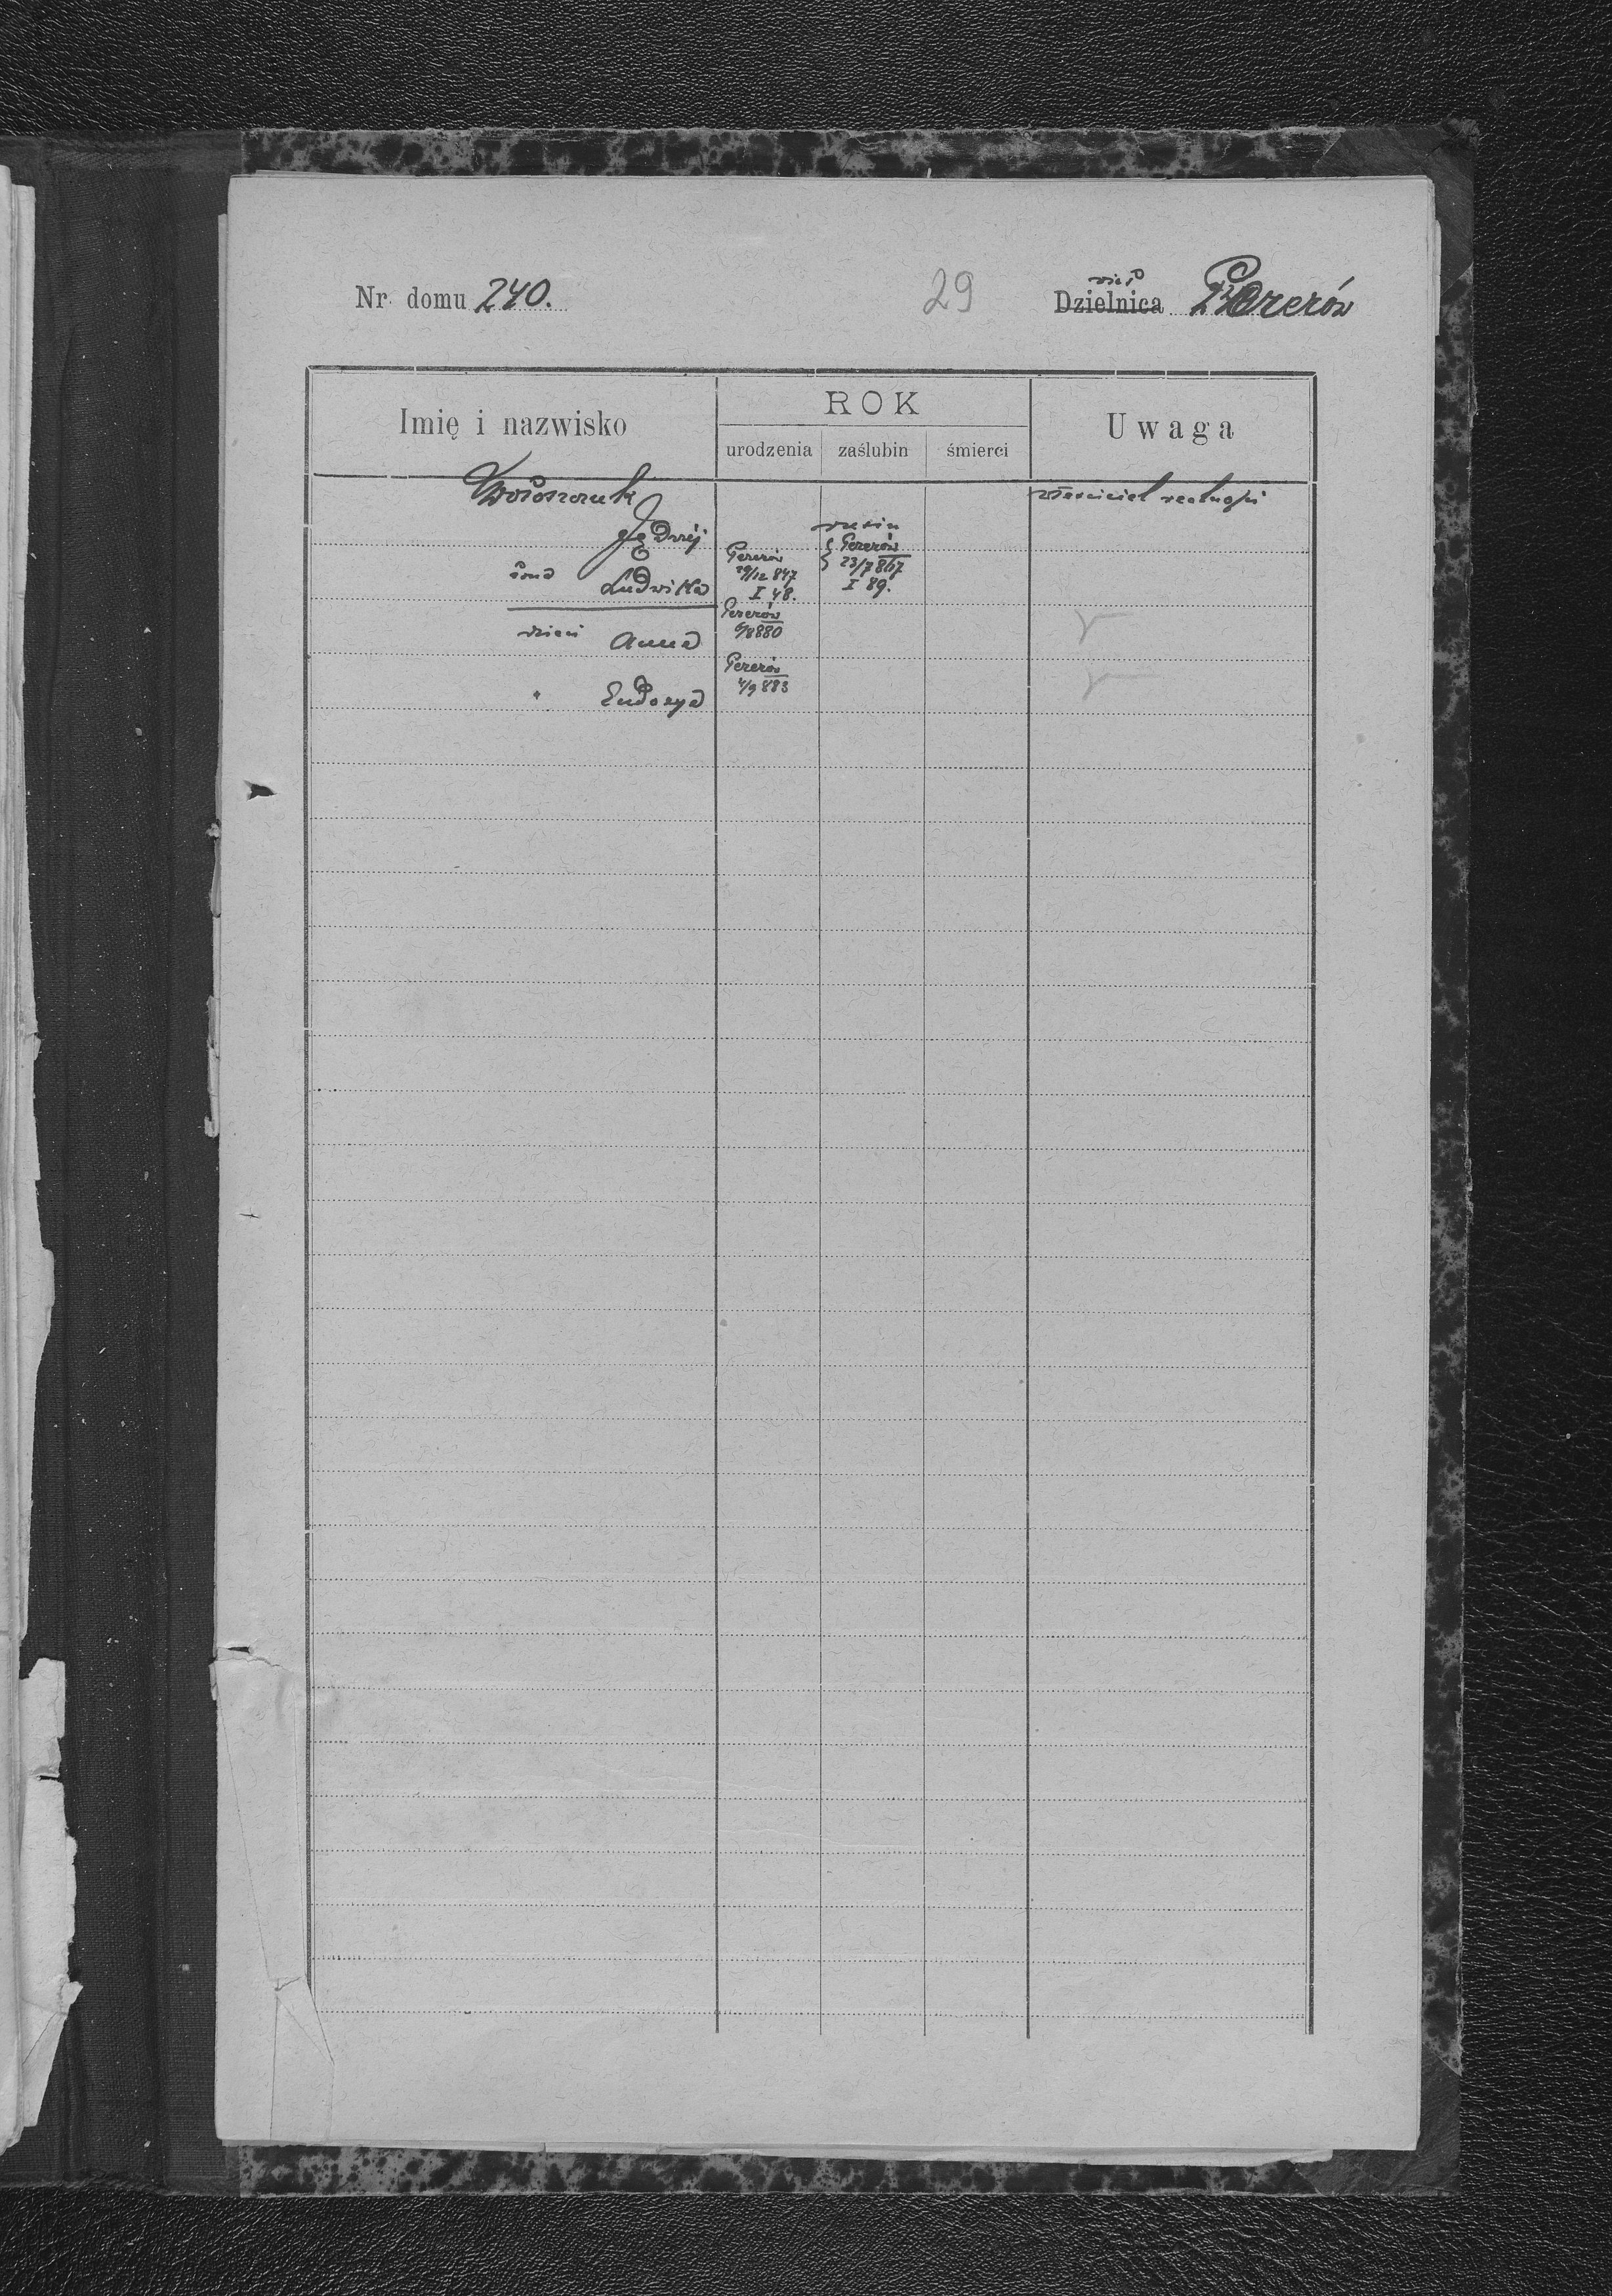 Nr. domu 240.
29
wieś
Dzielnica Pererów
Imię i nazwisko
ROK
Uwaga
urodzenia zaślubin śmierci
Wołoszczuk
właściciel realności
Jędrzej
Pererów
23/7 867
I 89.
żona Ludwika
Pererów
29/12 847
I 48.
dzieci Anna
Pererów
880
" Eudoxya
Pererów
4/9 883